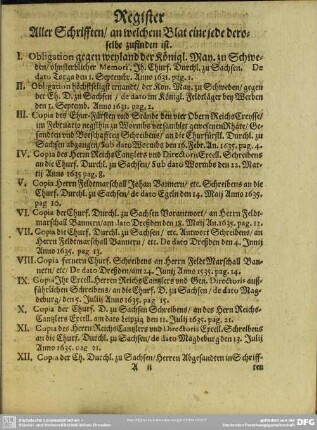 Register
Aller Schrifften/ an welchem Blat eine jede dero-
selbe zufinden ist.
I. Obligation gegen weyland der Königl. May. zu Schwe-
den/ ohnsterblicher Memori, Jh. Churf. Durchl. zu Sachsen. De
dato Torga den 1. Septembr. Anno 1631. pag. 1.
II. Obligation höchstseligst ernandt/ der Kön. May. zu Schweden/ gegen
der Ch. D. zu Sachsen/ de dato im Königl. Feldläger bey Werben
den 1. Septemb. Anno 1631. pag. 2.
III. Copia des Chur-Fürsten und Stände der vier Obern ReichsCreysse/
im Februario negsthin zu Wormbs versamblet gewesenen Rhäte/ Ge-
sandten und Bottschafften Schreiben/ an die Churfürstl. Durchl. zu
Sachsen abgangen/ sub dato Worms den 16. Febr. An. 1635. pag. 4.
IV. Copia des Herrn ReichsCantzlers und Directorii Excell. Schreibens
an die Churf. Durchl. zu Sachsen/ Sub dato Worms den 22. Mar-
tij Anno 1635 pag. 8.
V. Copia Herrn Feldtmarschall Johan Bannern/ etc. Schreibens an die
Churf. Durchl. zu Sachsen/ de dato Egeln den 14. Maij Anno 1635.
pag 10.
VI. Copia der Churf. Durchl. zu Sachsen Vorantwort/ an Herrn Feldt-
marschall Bannern/ am dato Dreßden den 18. Maij An. 1635. pag. 12
VII. Copia die Churf. Durchl. zu Sachsen/ etc. Antwort Schreiben/ an
Herrn Feldtmarschall Bannern/ etc. De dato Dreßden den 4. Junij
Anno 1635. pag. 13.
VIII. Copia fernern Churf. Schreibens an Herrn Feldt Marschall Ban-
nern/ etc/ De dato Dreßden/ am 24. Junij Anno 1535. pag. 14.
IX. Copia Jhr Excell. Herrn ReichsCantzlers und Gen. Directoris auß-
führlichen Schreibens/ an die Churf. D. zu Sachsen/ de dato Mag-
deburg/ den 5. Julij Anno 1635. pag 15.
X. Copia der Churf. D. zu Sachsen Schreiben/ an des Hern Reichs-
Cantzlers Excell. am dato Leipzig den 11. Julij 1635. pag. 21.
XI. Copia des Herrn ReichsCantzlers und Directorii Excell. Schreiben an
die Churf. Durchl. zu Sachsen/ de dato Magdeburg den 17. Julij
Anno 1635. pag 21.
XII. Copia der Ch. Durchl. zu Sachsen/ Herren Abgesandten in Schriff-
A ij
ten